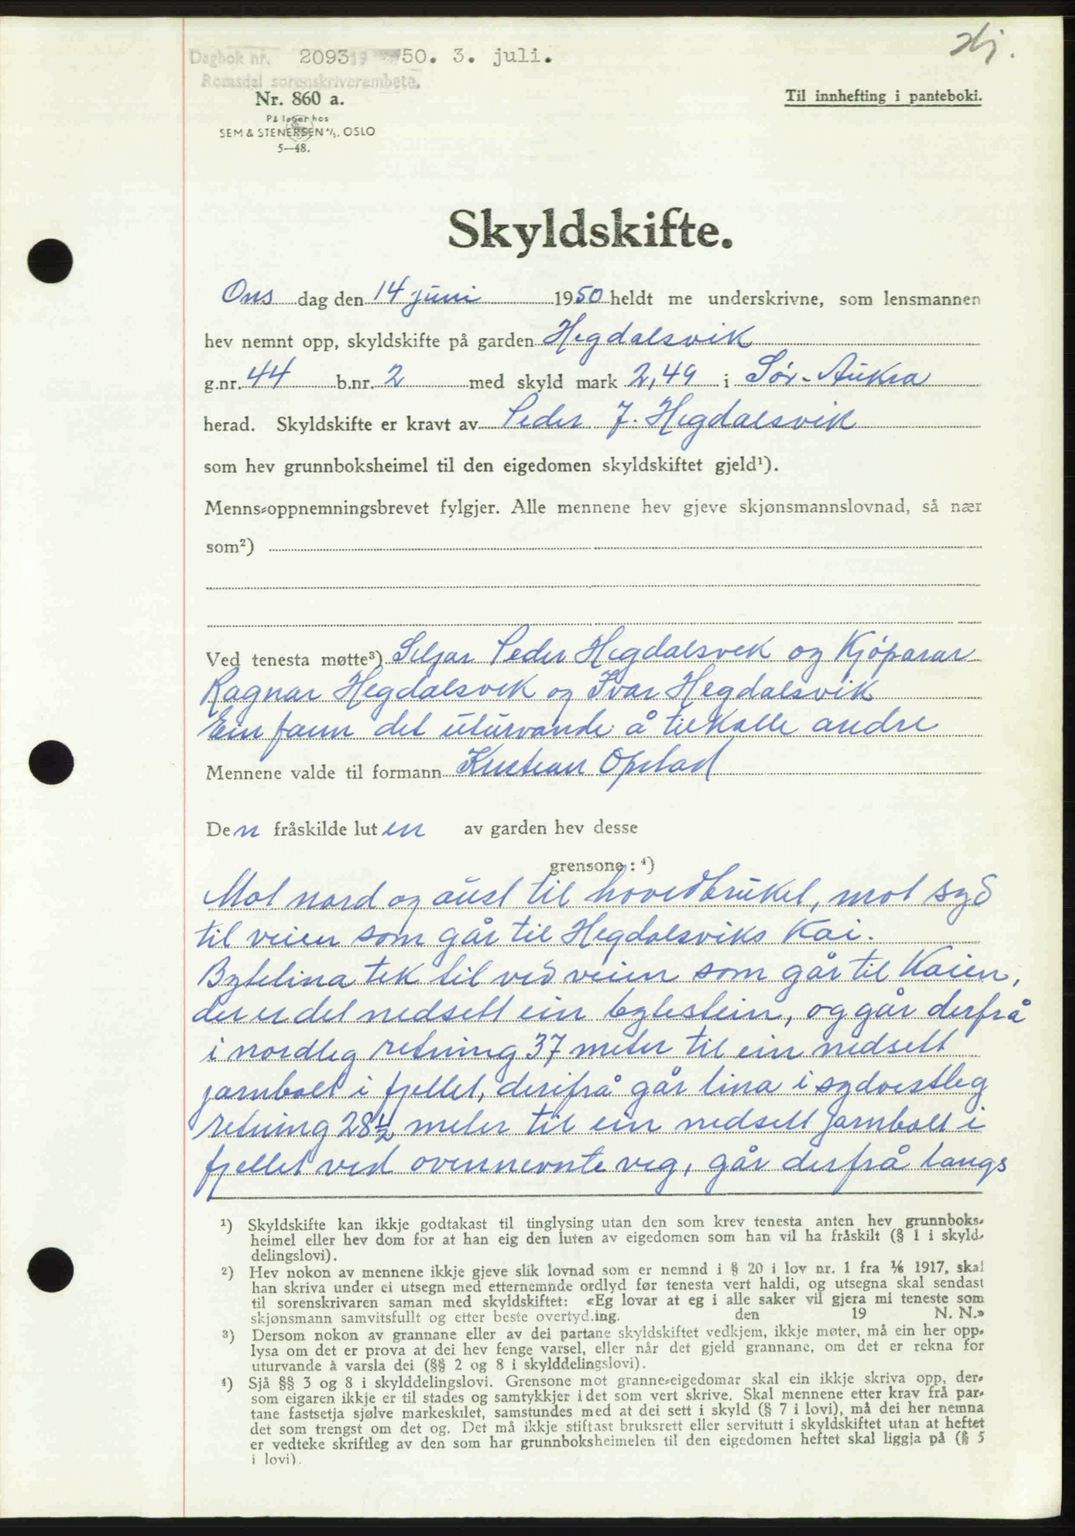 Dagbok nr. 2093 19 50. 3. juli.
Romsdal sorenskriverembete.
Nr. 860 a.
På lager hos
SEM & STENERSEN A/S. OSLO
5—48.
Til innhefting i panteboki.
Skyldskifte.
Ons dag den 14 juni 1950 heldt me underskrivne, som lensmannen
hev nemnt opp, skyldskifte på garden Hegdalsvik
g.nr. 44 b.nr. 2 med skyld mark 2,49 i Sør-Aukra
herad. Skyldskifte er kravt av Peder J. Hegdalsvik
som hev grunnboksheimel til den eigedomen skyldskiftet gjeld¹).
Menns-oppnemningsbrevet fylgjer. Alle mennene hev gjeve skjønsmannslovnad, så nær
som²)
Ved tenesta møtte³) Seljar Peder Hegdalsvik og Kjøparar
Ragnar Hegdalsvik og Ivar Hegdalsvik
Ein fann det uturvande å tilkalle andre
Mennene valde til formann Kristian Opstad
Den fråskilde luten av garden hev desse
grensone: ⁴)
Mot nord og aust til hovedbruket, mot syd
til veien som går til Hegdalsviks Kai.
Bytelina tek til ved veien som går til Kaien,
der er det nedsett ein bytestein, og går derfrå
i nordleg retning 37 meter til ein nedsett
jarnbolt i fjellet, derifrå går lina i sydvestleg
retning 28½ meter til ein nedsett jarnbolt i
fjellet ved ovennevnte veg, går derfrå langs
¹) Skyldskifte kan ikkje godtakast til tinglysing utan den som krev tenesta anten hev grunnboks-
heimel eller hev dom for at han eig den luten av eigedomen som han vil ha fråskilt (§ 1 i skyld-
delingslovi).
²) Hev nokon av mennene ikkje gjeve slik lovnad som er nemnd i § 20 i lov nr. 1 fra 1/6 1917, skal
han skriva under ei utsegn med etternemnde ordlyd før tenesta vert haldi, og utsegna skal sendast
til sorenskrivaren saman med skyldskiftet: «Eg lovar at eg i alle saker vil gjera mi teneste som
skjønsmann samvitsfullt og etter beste overtyding. den 19 N. N.»
³) Dersom nokon av grannane eller av dei partane skyldskiftet vedkjem, ikkje møter, må ein her opp-
lysa om det er prova at dei hev fenge varsel, eller når det gjeld grannane, om det er rekna for
uturvande å varsla dei (§§ 2 og 8 i skylddelingslovi).
⁴) Sjå §§ 3 og 8 i skylddelingslovi. Grensone mot granne-eigedomar skal ein ikkje skriva opp, der-
som eigaren ikkje er til stades og samtykkjer i det som vert skrive. Skal mennene etter krav frå par-
tane fastsetja sjølve markeskilet, samstundes med at dei sett i skyld (§ 7 i lovi), må dei her nemna
det som trengst om det og. Det må ikkje stiftast bruksrett eller servitutt i skyldskiftet utan at heftet
er vedteke skriftleg av den som har grunnboksheimelen til den eigedomen heftet skal liggja på (§ 5
i lovi).